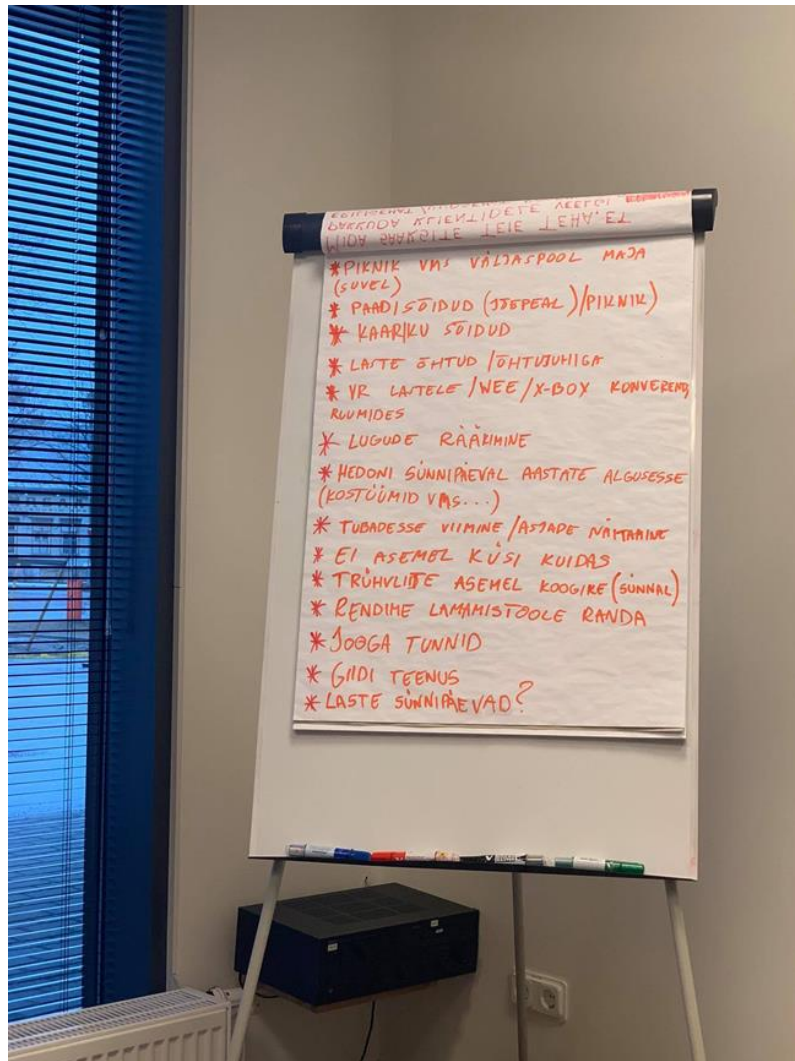 MIDA SAAKSITE TEIE TEHA, ET
PAKKUDA KLIENTIDELE VEELGI
* PIKNIK VMS VÄLJASPOOL MAJA
(SUVEL)
* PAADISÕIDUD (JÕEPEAL)/PIKNIK)
* KAARIKU SÕIDUD
* LASTE ÕHTUD /ÕHTUJUHIGA
* VR LASTELE /WEE/X-BOX KONVERENTS
RUUMIDES
* LUGUDE RÄÄKIMINE
* HEDONI SÜNNIPÄEVAL AASTATE ALGUSESSE
(KOSTÜÜMID VMS...)
* TUBADESSE VIIMINE /ASJADE NÄITAMINE
* EI ASEMEL KÜSI KUIDAS
* TRÜHVLITE ASEMEL KOOGIKE (SÜNNAL)
* RENDIME LAMAMISTOOLE RANDA
* JOOGA TUNNID
* GIIDI TEENUS
* LASTE SÜNNIPÄEVAD?